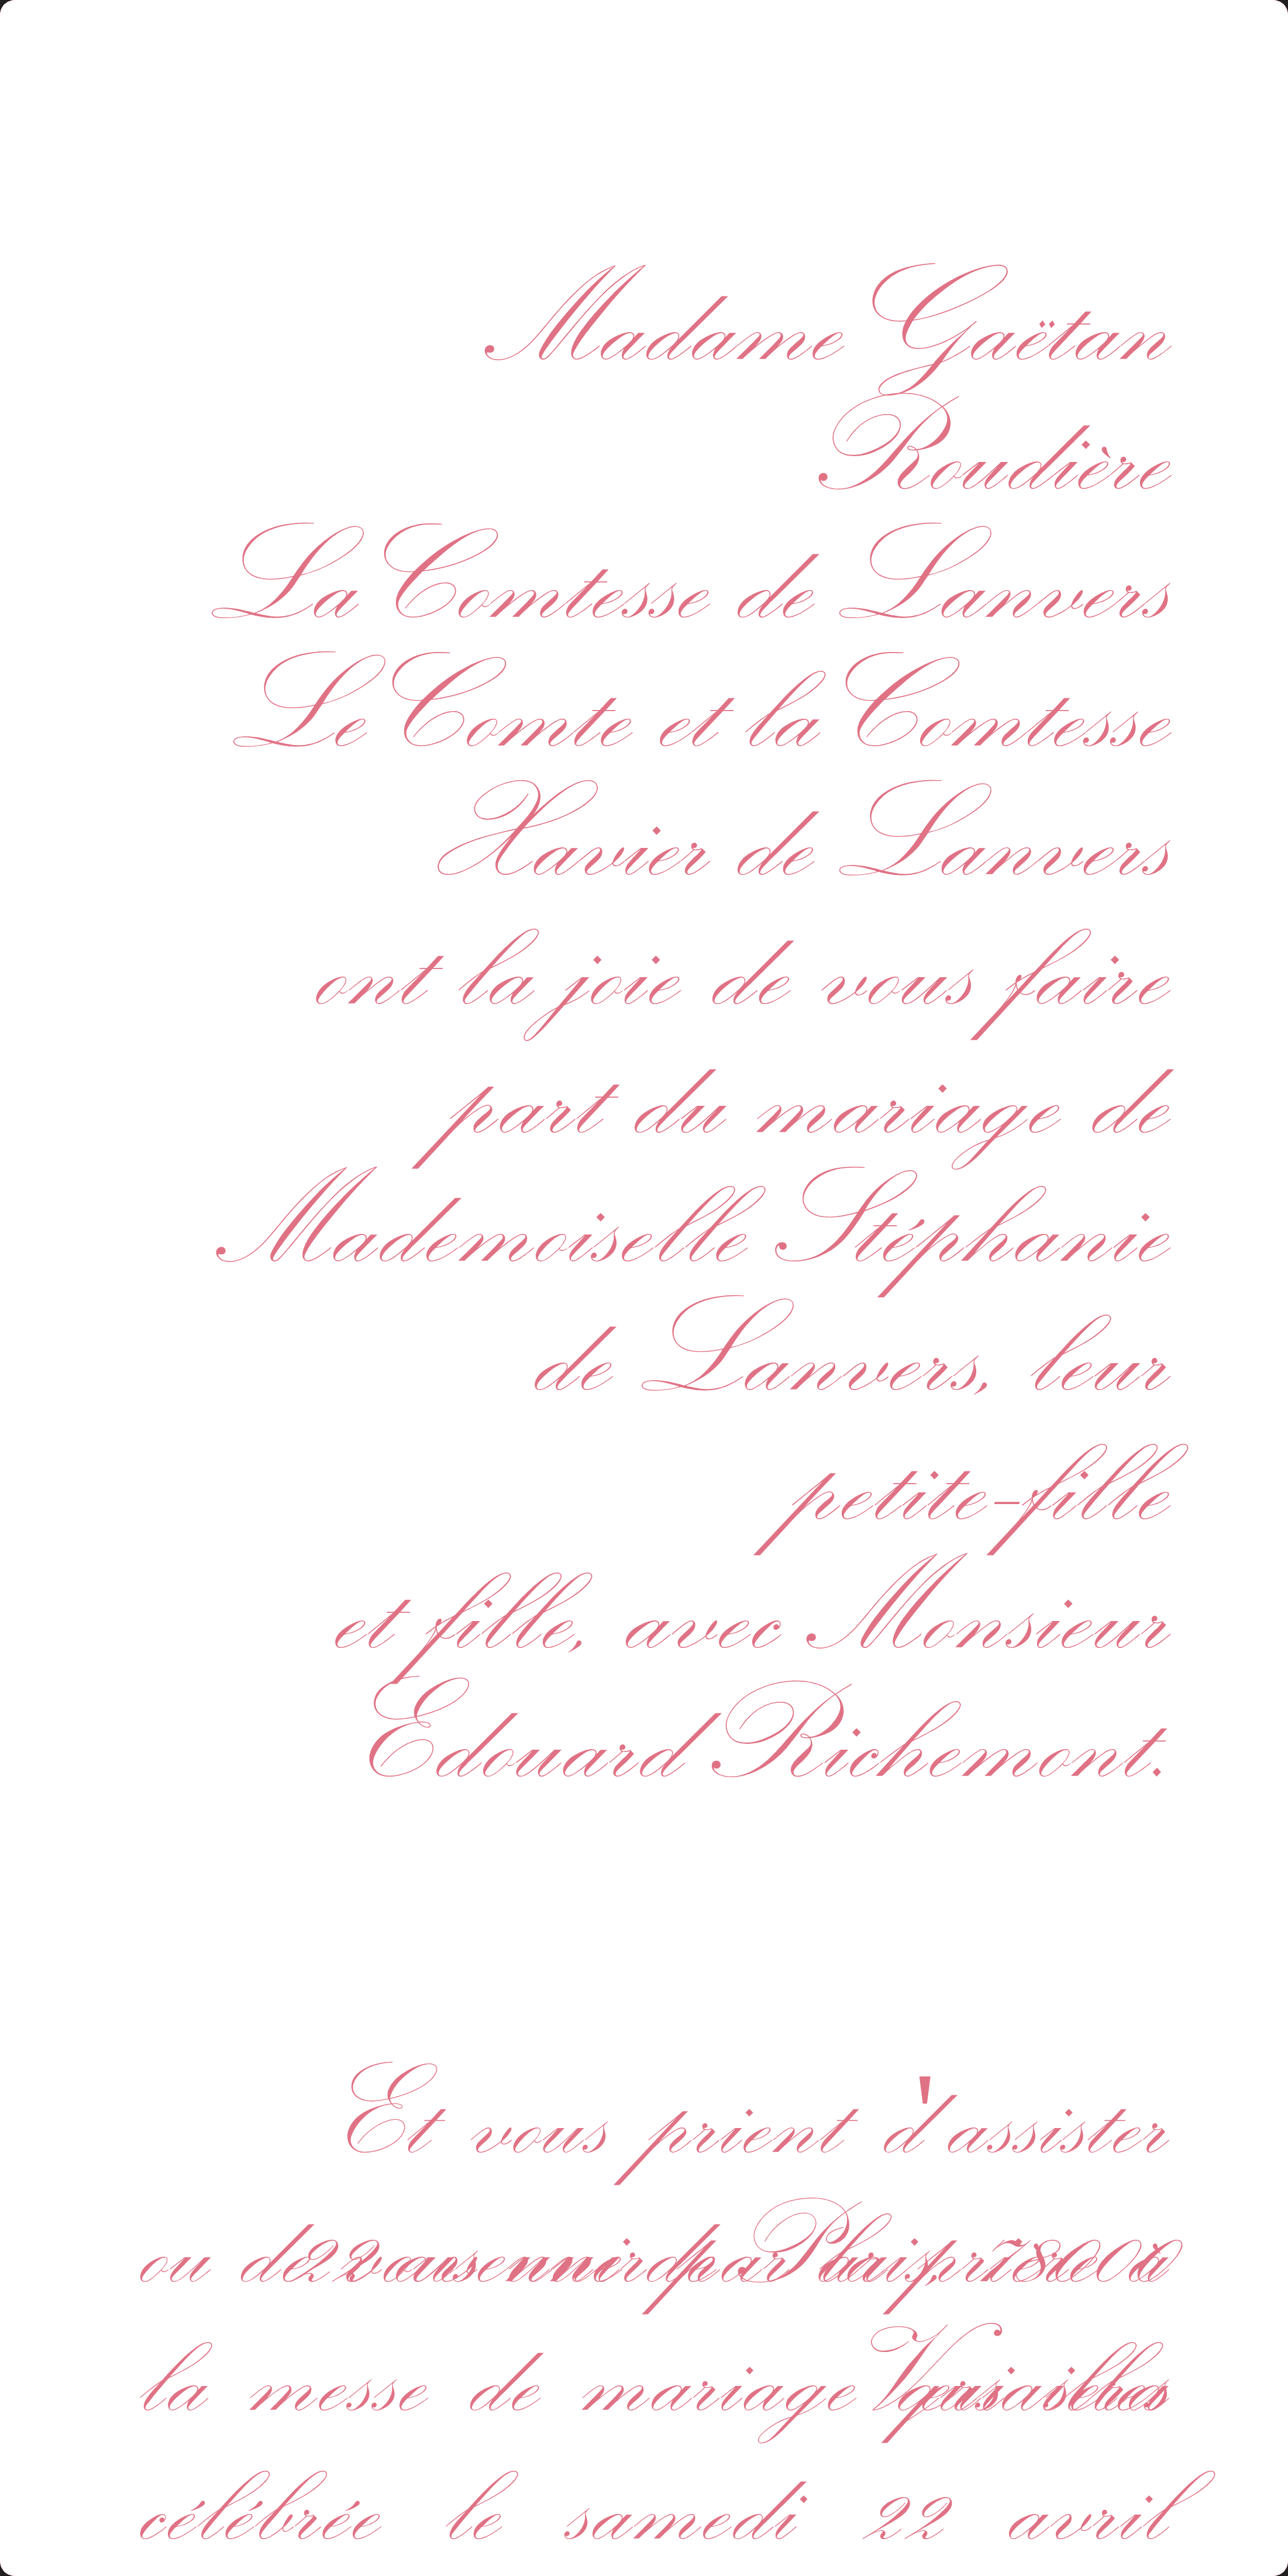 Madame Gaëtan
Roudière
La Comtesse de Lanvers
Le Comte et la Comtesse
Xavier de Lanvers
ont la joie de vous faire
part du mariage de
Mademoiselle Stéphanie
de Lanvers, leur
petite-fille
et fille, avec Monsieur
Edouard Richemont.
Et vous prient d'assister
ou de vous unir par la prière à
22 avenue de Paris, 78000
la messe de mariage qui sera
Versailles
célébrée le samedi 22 avril